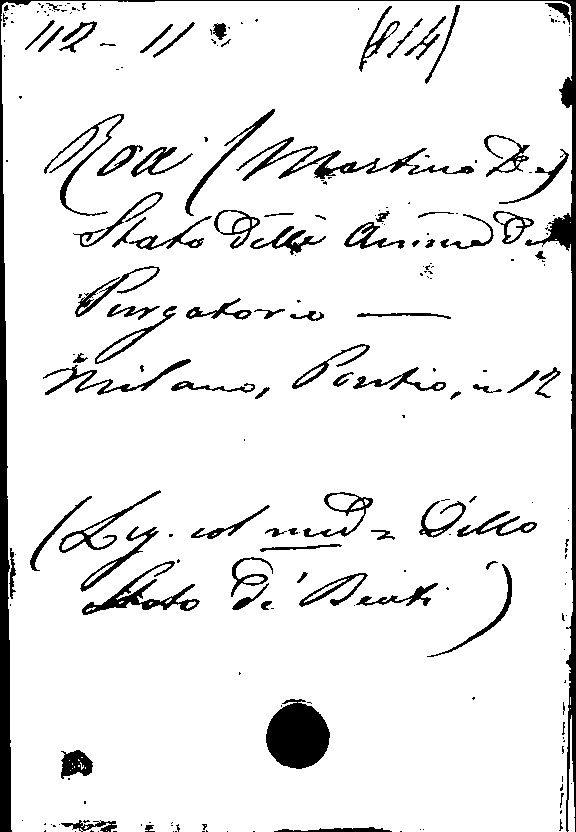 112 - 11 (814)
Roa (Martino De)
Stato delle Anime del
Purgatorio —
Milano, Pontio, in 12
(Leg. col med = Dello
Stato de' Beati)